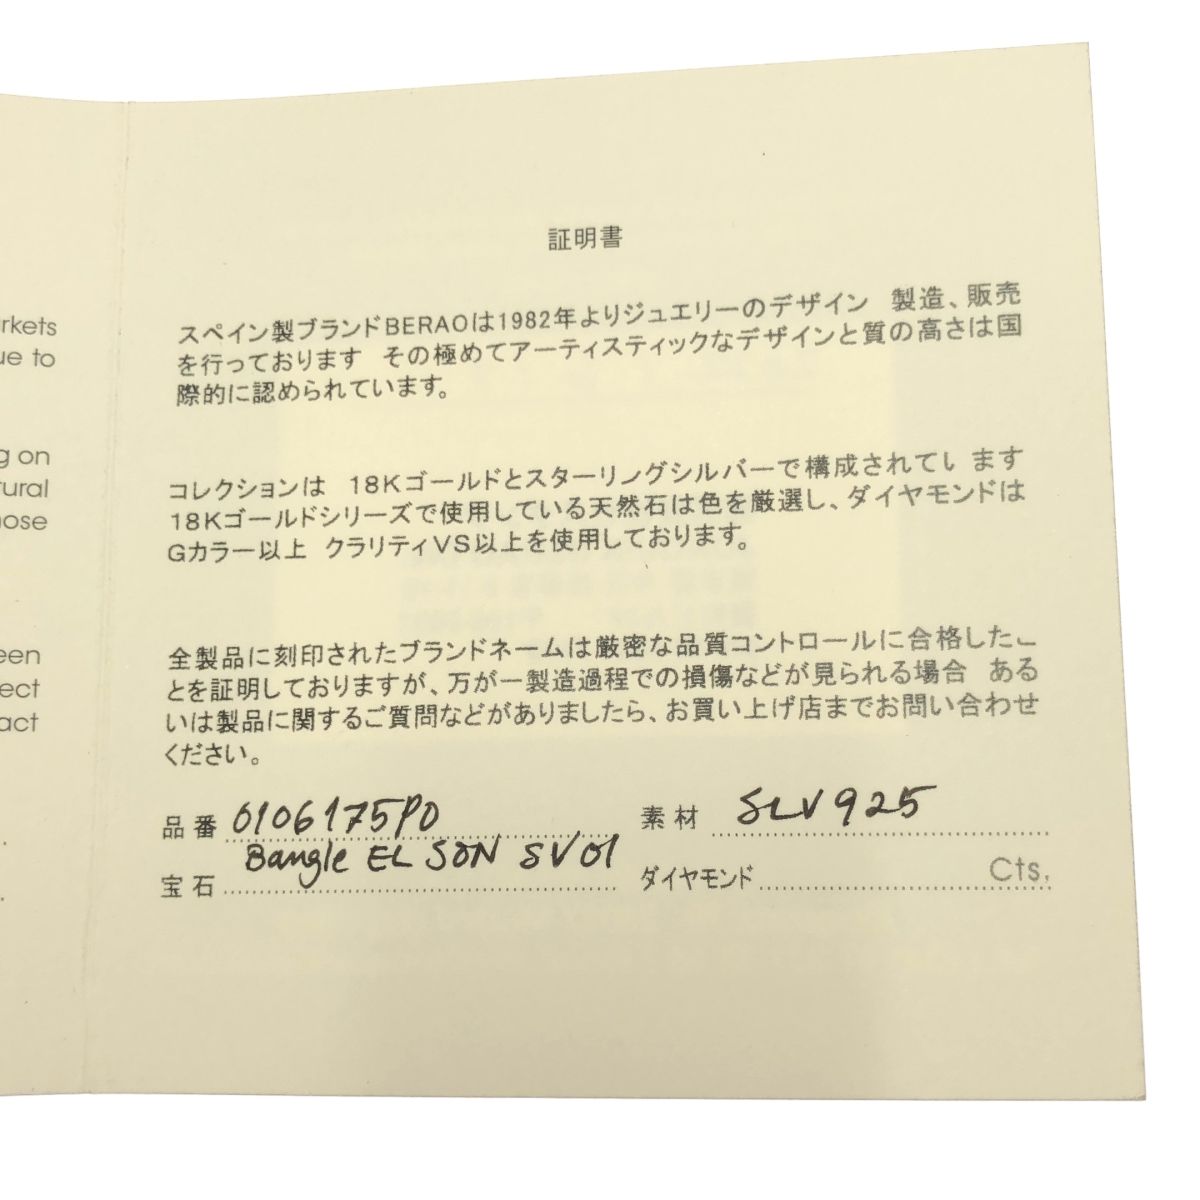 rkets
ue to
g on
tural
hose
een
ect
act
証明書
スペイン製ブランドBERAOは1982年よりジュエリーのデザイン 製造、販売
を行っております その極めてアーティスティックなデザインと質の高さは国
際的に認められています。
コレクションは 18Kゴールドとスターリングシルバーで構成されています
18Kゴールドシリーズで使用している天然石は色を厳選し、ダイヤモンドは
Gカラー以上 クラリティVS以上を使用しております。
全製品に刻印されたブランドネームは厳密な品質コントロールに合格したこ
とを証明しておりますが、万が一製造過程での損傷などが見られる場合 ある
いは製品に関するご質問などがありましたら、お買い上げ店までお問い合わせ
ください。
品番 0106175PD 素材 SLV925
Bangle EL SON SV01
宝石 ダイヤモンド Cts,